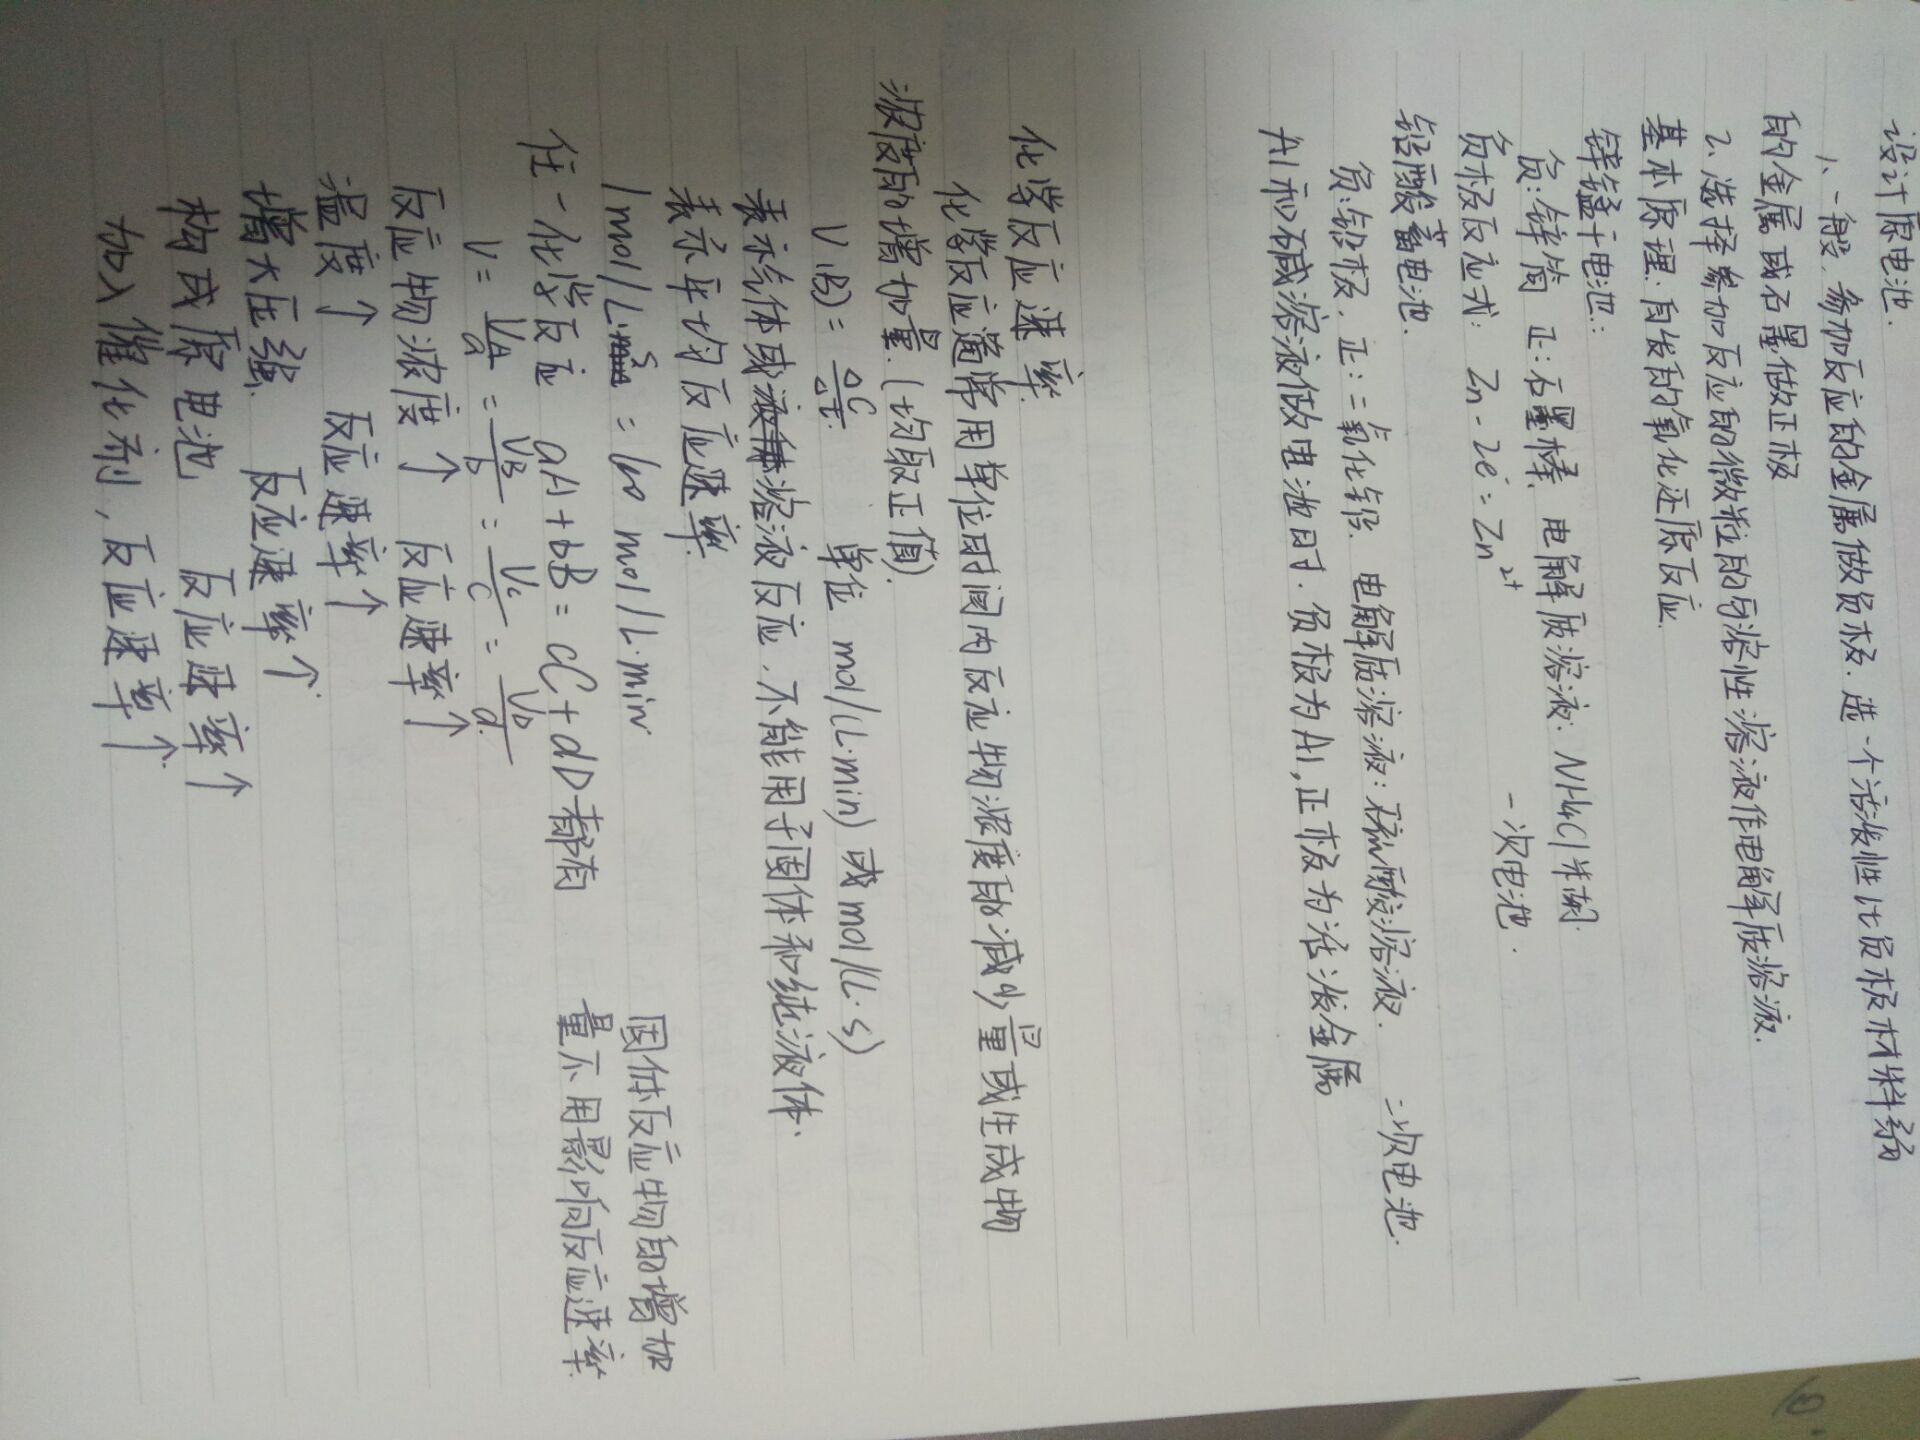 设计原电池.
1、一般.参加反应的金属做负极.选一个活泼性比负极材料弱
的金属或石墨做正极
2、选择参加反应的微粒的可溶性溶液作电解质溶液.
基本原理:自发的氧化还原反应.
锌锰干电池:
负:锌筒 正:石墨棒 电解质溶液:NH4Cl 糊
负极反应式: Zn - 2e⁻ = Zn²⁺ 一次电池.
铅酸蓄电池.
负:铅极.正:二氧化铅 电解质溶液:硫酸溶液. 二次电池.
Al和碱溶液做电池时.负极为Al,正极为活泼金属
化学反应速率.
化学反应通常用单位时间内反应物浓度的减少量或生成物
浓度的增加量.(均取正值).
V(B)= △C/△t. 单位 mol/(L·min) 或 mol/(L·s)
表示气体或溶液反应.不能用于固体和纯液体.
表示平均反应速率.
1mol/L·s = 60 mol/L·min
任一化学反应 aA+bB=cC+dD都有
V= VA/a = VB/B = Vc/C = VD/d.
固体反应物的增加
量不用影响反应速率
反应物浓度↑ 反应速率↑
温度↑ 反应速率↑
增大压强 反应速率↑.
构成原电池 反应速率↑
加入催化剂,反应速率↑.